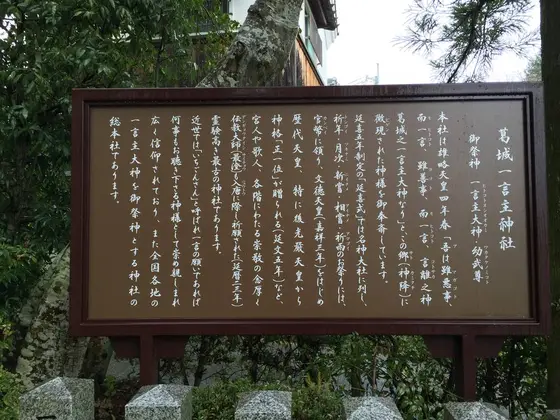 葛城一言主神社
御祭神(一言主大神・幼武尊
本社は雄略天皇四年春、「吾は雖悪事、
而一言、雖善事、而一言、言離之神
葛城之一言主大神なり」と、この郷(神降)に
微現された神様を御奉斎しています。
延喜五年制定の「延喜式」では名神大社に列し、
祈年、月次、新嘗、相嘗、祈雨のお祭りには、
官幣に預り、文徳天皇(嘉祥三年)をはじめ
歴代天皇、特に後光厳天皇から
神格「正一位」が贈られる(延文五年)など、
官人や歌人、各階にわたる崇敬の念厚く
伝教大師(最澄)入唐に際し祈願された(延暦二三年)
霊験高き最古の神社であります。
近世では「いちごんさん」と呼ばれ「一言の願」であれば
何事もお聴き下さる神様として崇め親しまれ
広く信仰されており、また全国各地の
一言主大神を御祭神とする神社の
総本社であります。